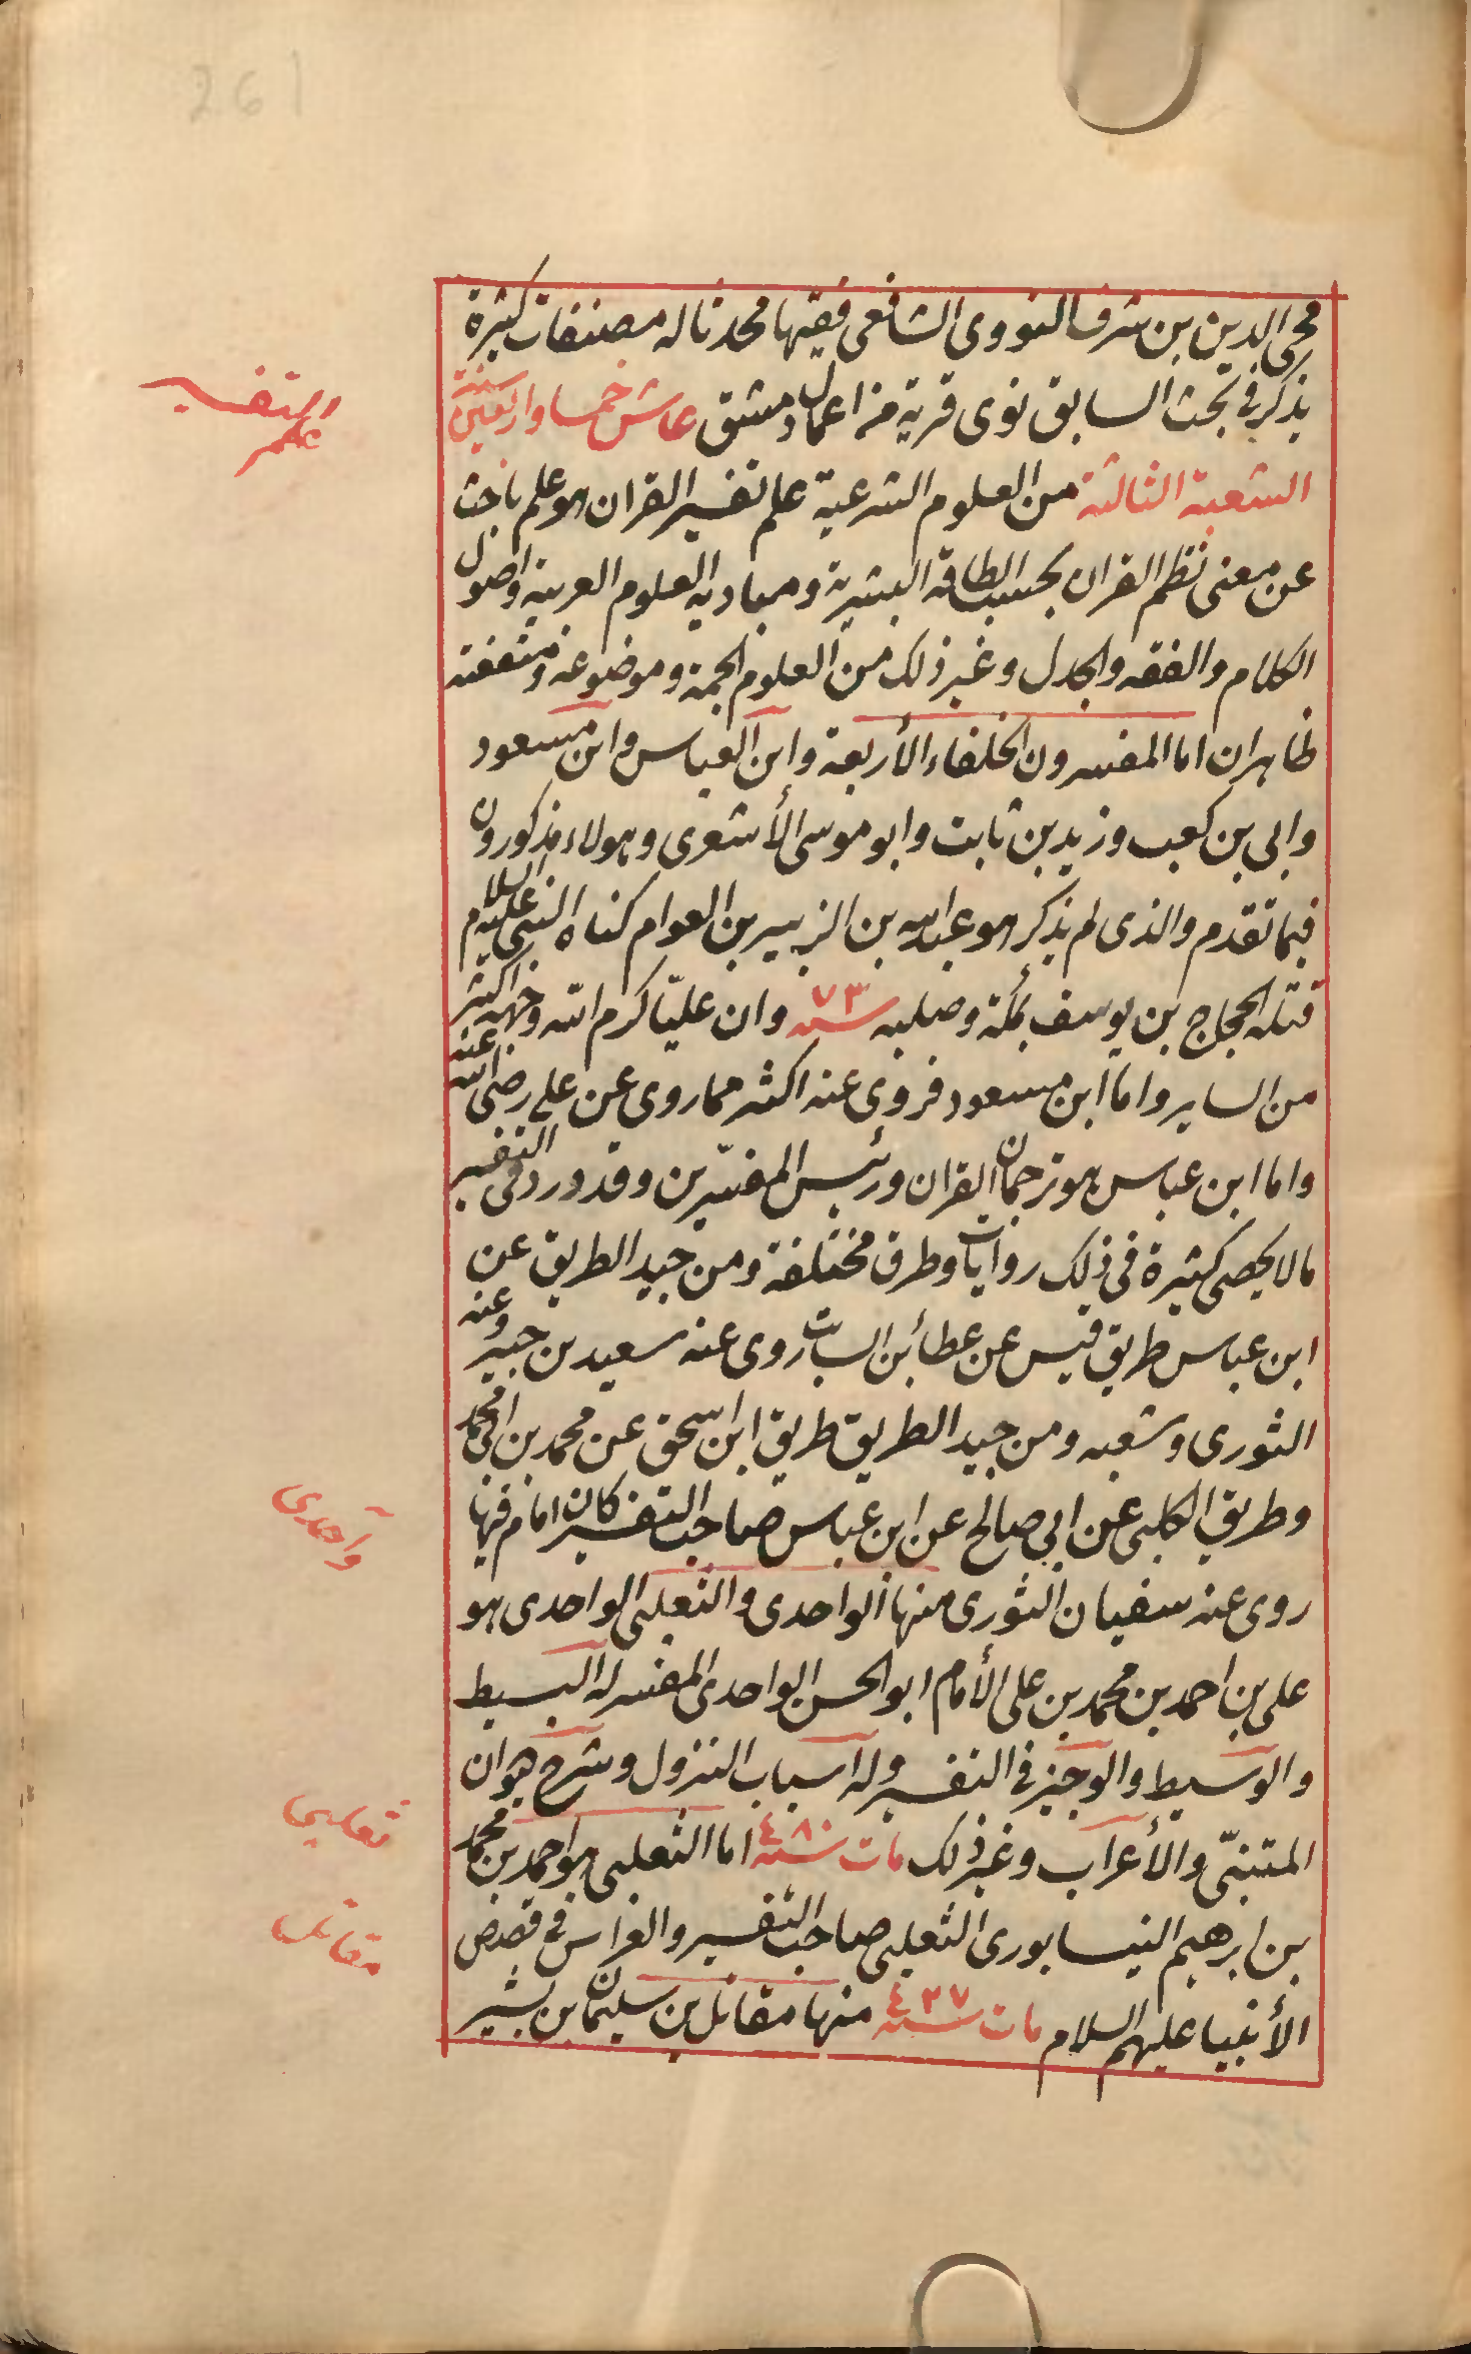 261
محى الدين بن شرف النووى الشافعى فقيها محدثا له مصنفات كثيرة
يذكر فى بحث السابق نوى قرية من اعمال دمشق عاش خمسا واربعين سنة
علم التفسير
الشعبة الثالثة من العلوم الشرعية علم تفسير القران هو علم باحث
عن معنى نظم القران بحسب الطاقة البشرية ومباديه العلوم العربية واصول
الكلام والفقه والجدل وغير ذلك من العلوم الجمة وموضوعه ومنفعته
ظاهران اما المفسرون الخلفاء الأربعة وابن العباس وابن مسعود
وابى بن كعب وزيد بن ثابت وابو موسى الأشعرى وهولاء مذكورون
فيما تقدم والذى لم يذكر هو عبد الله بن الزبير بن العوام كناه النبى عليه السلام
قتله الحجاج بن يوسف بمكة وصلبه سنه ٧٣ وان عليّا كرم الله وجهه اكثر
من الساير واما ابن مسعود فروى عنه اكثر مما روى عن على رضى الله عنه
واما ابن عباس هو ترجمان القران ورئيس المفسّرين وقد ورد فى التفسير
مالا يحصى كثيرة فى ذلك روايات وطرق مختلفة ومن جيد الطريق عن
ابن عباس طريق قيس عن عطا بن السائب روى عنه سعيد بن جبير وعنه
الثورى وشعبه ومن جيد الطريق طريق ابن اسحق عن محمد بن ابى محمد
وطريق الكلبى عن ابى صالح عن ابن عباس صاحب التفسير كان امام فيها
واحدى
روى عنه سفيان الثورى منها الواحدى والثعلبى الواحدى هو
على بن احمد بن محمد بن على الأمام ابو الحسن الواحدى المفسر له البسيط
والوسيط والوجيز فى التفسير وله اسباب النزول وشرح ديوان
المتنبّى والأعراب وغير ذلك مات سنه ٤٨٠ اما الثعلبى هو احمد بن محمد
ثعلبى
بن ابرهيم النيسابورى الثعلبى صاحب التفسير والعرايس فى قصص
مقاتل
الأنبيا عليهم السلام مات سنه ٤٢٧ منها مقاتل بن سليمان بن بشير